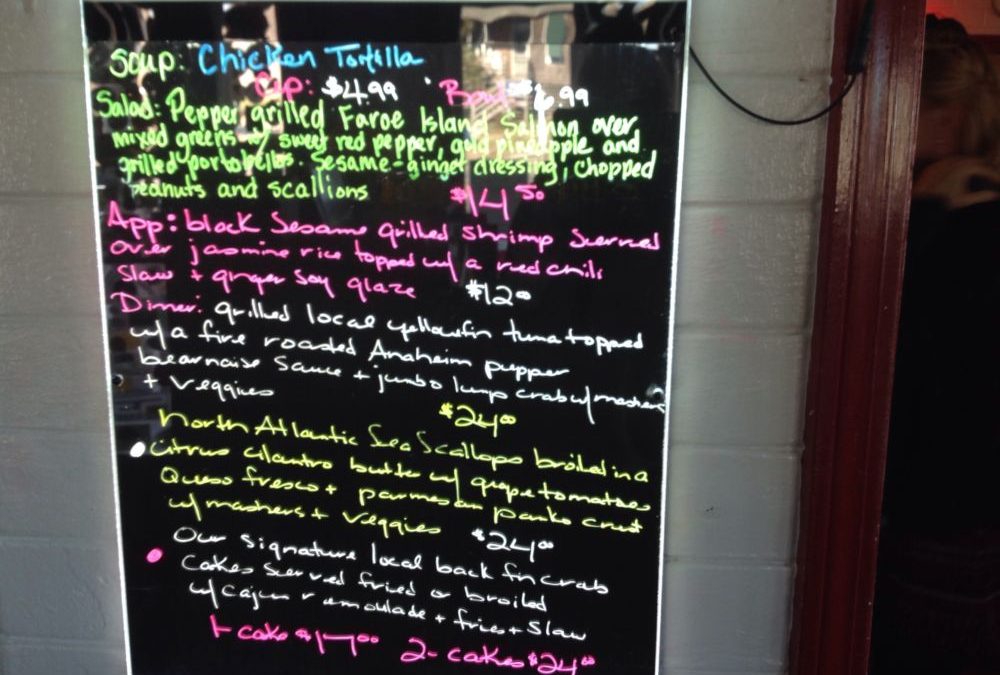 Soup: Chicken Tortilla
Cup: $4.99 Bowl $6.99
Salad: Pepper grilled Faroe Island Salmon over
mixed greens w/ sweet red pepper, gold pineapple and
grilled portobellos. Sesame-ginger dressing, chopped
peanuts and scallions $14.50
App: black Sesame grilled shrimp Serrved
over jasmine rice topped w/ a red chili
Slaw + ginger Soy glaze $12.00
Dinner: grilled local yellowfin tuna topped
w/ a fire roasted Anaheim pepper
bearnaise Sauce + jumbo lump crab w/ mashers
+ veggies $24.00
North Atlantic Sea Scallops broiled in a
Citrus cilantro butter w/ grape tomatoes
Queso fresco + parmesan panko crust
w/ mashers + veggies $24.00
Our signature local back fin crab
Cakes Serrved fried or broiled
w/ Cajun remoulade + fries + Slaw
1- cake $17.00 2- cakes $24.00